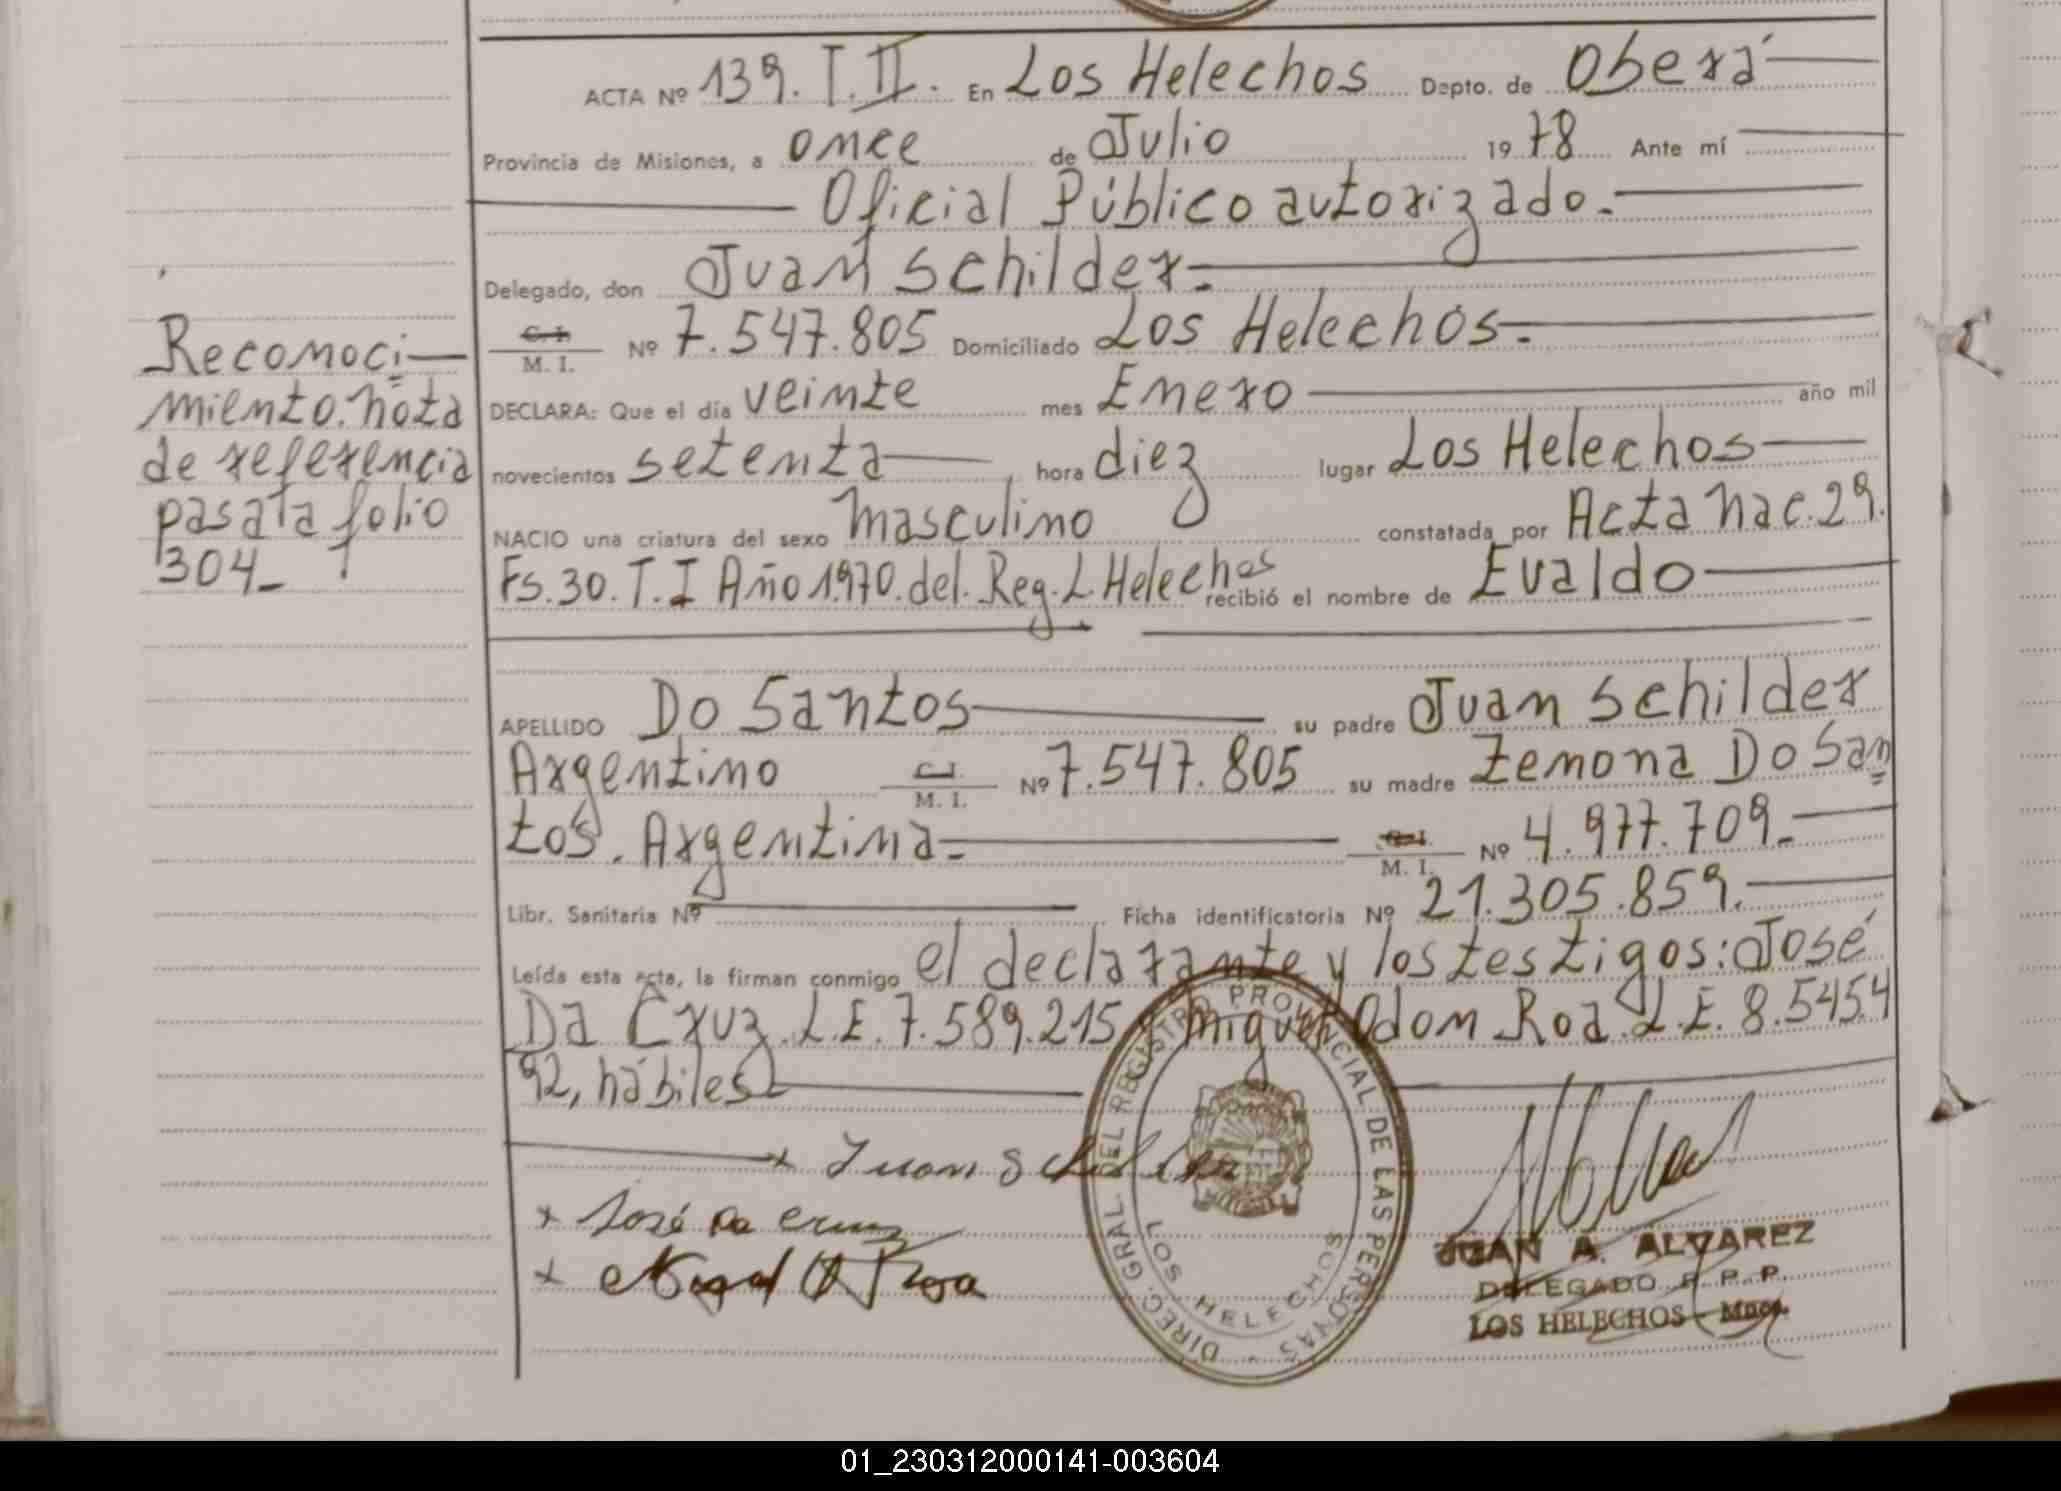 ACTA Nº 139. T. II. En Los Helechos Depto. de Oberá
Provincia de Misiones, a once de Julio 19 78 Ante mí
Oficial Público autorizado.-
Delegado, don Juan Schilder.-
C. I. M. I. Nº 7.547.805 Domiciliado Los Helechos.-
DECLARA: Que el día veinte mes Enero año mil
novecientos setenta hora diez lugar Los Helechos
NACIO una criatura del sexo masculino constatada por Acta Nac. 29.
Fs. 30. T. I Año 1970. del. Reg. L. Helechos recibió el nombre de Evaldo
APELLIDO Do Santos su padre Juan Schilder
Argentino C. I. M. I. Nº 7.547.805 su madre Zemona Do San
tos. Argentina.- C. I. M. I. Nº 4.977.709.-
Libr. Sanitaria Nº Ficha identificatoria Nº 21.305.859.
Leída esta acta, la firman conmigo el declarante y los testigos: José
Da Cruz. L.E. 7.589.215 y Miguel Odom Roa. L.E. 8.545.4
92, hábiles
Reconoci-
miento. nota
de referencia
pasa a folio
304-
x Juan Schilder
x José Da Cruz
x Miguel O Roa
DIREC. GRAL DEL REGISTRO PROVINCIAL DE LAS PERSONAS
LOS HELECHOS
JUAN A. ALVAREZ
DELEGADO R. P. P.
LOS HELECHOS - Mnes.
01_230312000141-003604